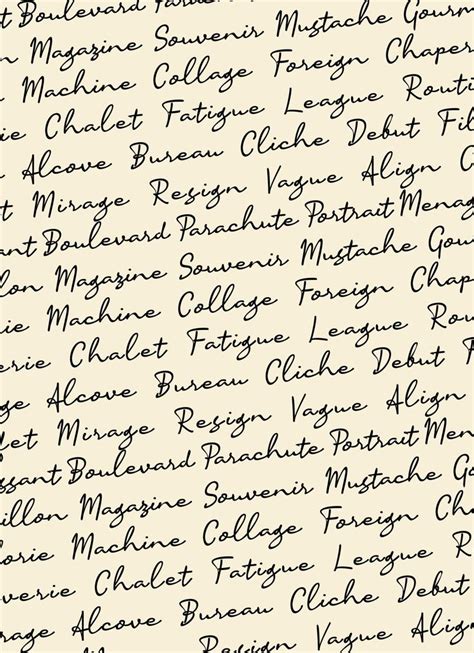 t Boulevard
n Magazine Souvenir Mustache Gourm
Machine Collage Foreign Chaper
rie Chalet Fatigue League Routi
Alcove Bureau Cliche Debut Fil
t Mirage Resign Vague Align C
sant Boulevard Parachute Portrait Menag
llon Magazine Souvenir Mustache Gou
ie Machine Collage Foreign Chap
erie Chalet Fatigue League Rou
ge Alcove Bureau Cliche Debut F
let Mirage Resign Vague Align
ssant Boulevard Parachute Portrait Men
illon Magazine Souvenir Mustache Go
orie Machine Collage Foreign Ch
verie Chalet Fatigue League R
rage Alcove Bureau Cliche Debut
Resign Vague Align